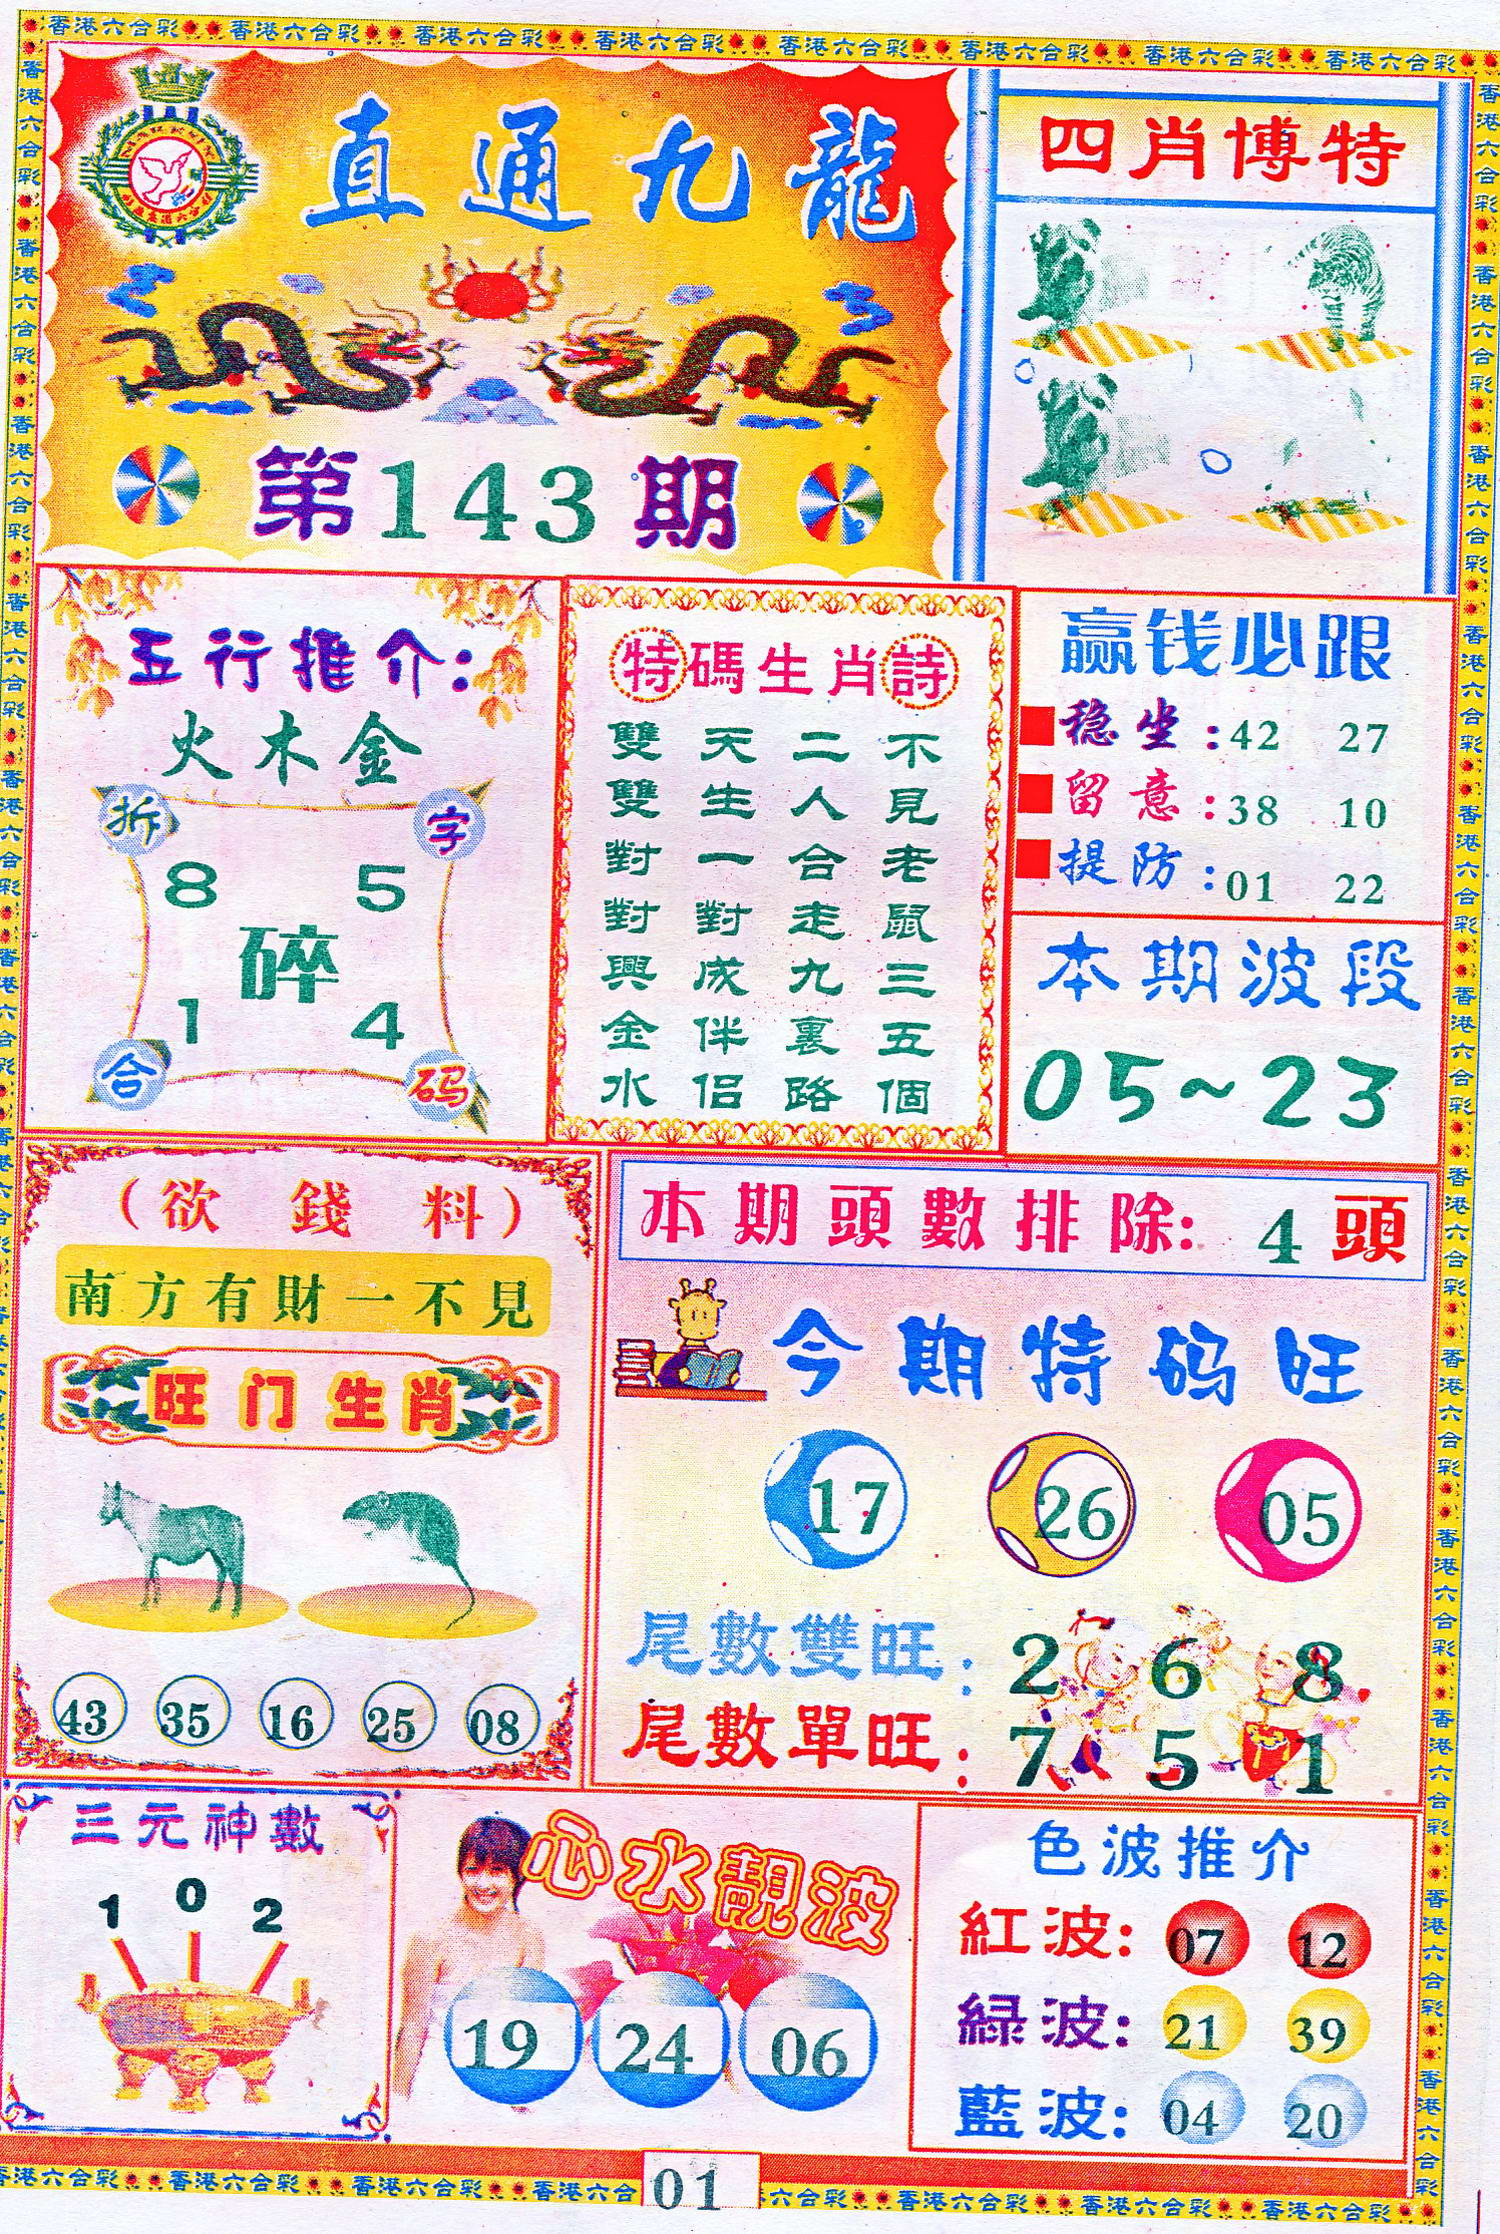 香港六合彩 香港六合彩 香港六合彩 香港六合彩 香港六合彩 香港六合彩 香港六合彩 香港六合彩
直通九龍
第143期
四肖博特
五行推介:
火木金
拆字
8 5
碎
1 4
合码
特碼生肖詩
不見老鼠三五個
二人合走九裏路
天生一對成伴侣
雙雙對對興金水
赢钱必跟
稳坐:42 27
留意:38 10
提防:01 22
本期波段
05~23
(欲錢料)
南方有財一不見
旺门生肖
43 35 16 25 08
本期頭數排除:4頭
今期特码旺
17 26 05
尾數雙旺:2 6 8
尾數單旺:7 5 1
三元神數
1 0 2
心水靚波
19 24 06
色波推介
紅波:07 12
緑波:21 39
藍波:04 20
香港六合彩 香港六合彩 香港六合彩 香港六合 01 六合彩 香港六合彩 香港六合彩 香港六合彩